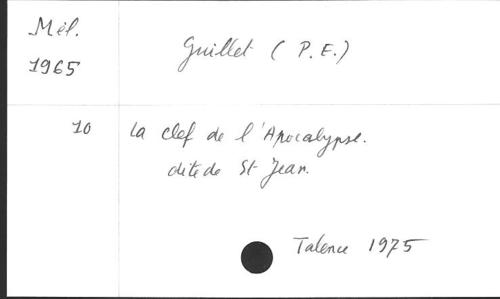 Mél.
1965
Guillet (P.E.)
10
La clef de l'Apocalypse.
dite de St Jean.
Talence 1975